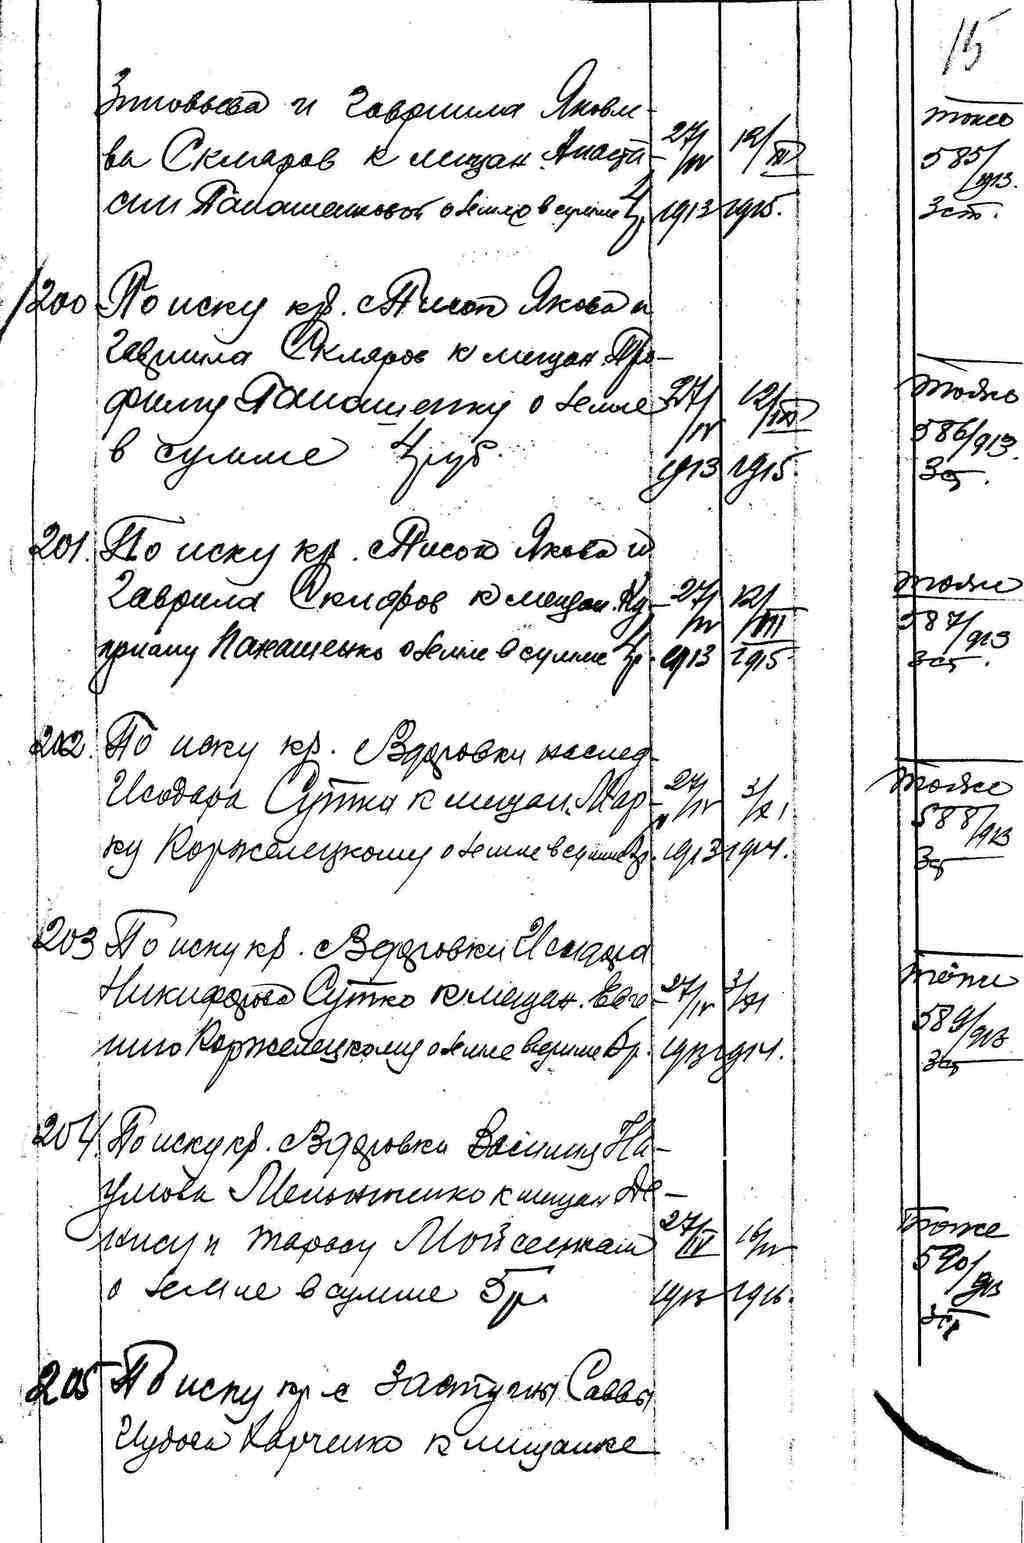 15
Зиновьева и Гавриила Яковле-
ва Скляров к мещан. Анаста-
сии Панашенковой о земле в сумме 4 р.
27/IV 1913
12/III 1915.
тоже
585/913.
3 ст.
200 По иску кр. с. Якова и
Гавриила Скляров к мещан. Тро-
фиму Панашенку о земле
в сумме 4 руб.
27/IV 1913
12/III 1915.
тоже
586/913.
3 ст.
201. По иску кр. с. Якова и
Гаврила Скляров к мещан. Ку-
приану Панашенко о земле в сумме 4 р.
27/IV 1913
12/III 1915.
тоже
587/913
3 ст.
202. По иску кр. с. Вдовки наслед.
Исидора Сутка к мещан. Мар-
ку Коржелецкому о земле в сумме р.
27/IV 1913
3/XI 1914.
тоже
588/913
3 ст.
203 По иску кр. с. Вдовки Исидора
Никифорова Сутко к мещан. Евге-
нию Коржелецкому о земле в сумме р.
27/IV 1913
3/XI 1914.
тоже
589/913
3 ст.
204. По иску кр. с. Вдовки Василия На-
умова Мельниченко к мещан. Де-
нису и Тарасу Мойсеенкам
о земле в сумме 5 р.
27/IV 1913
16/IV 1916.
тоже
590/913
3 ст.
205 По иску кр. с. Заступны Саввы
Карченко к мещанке